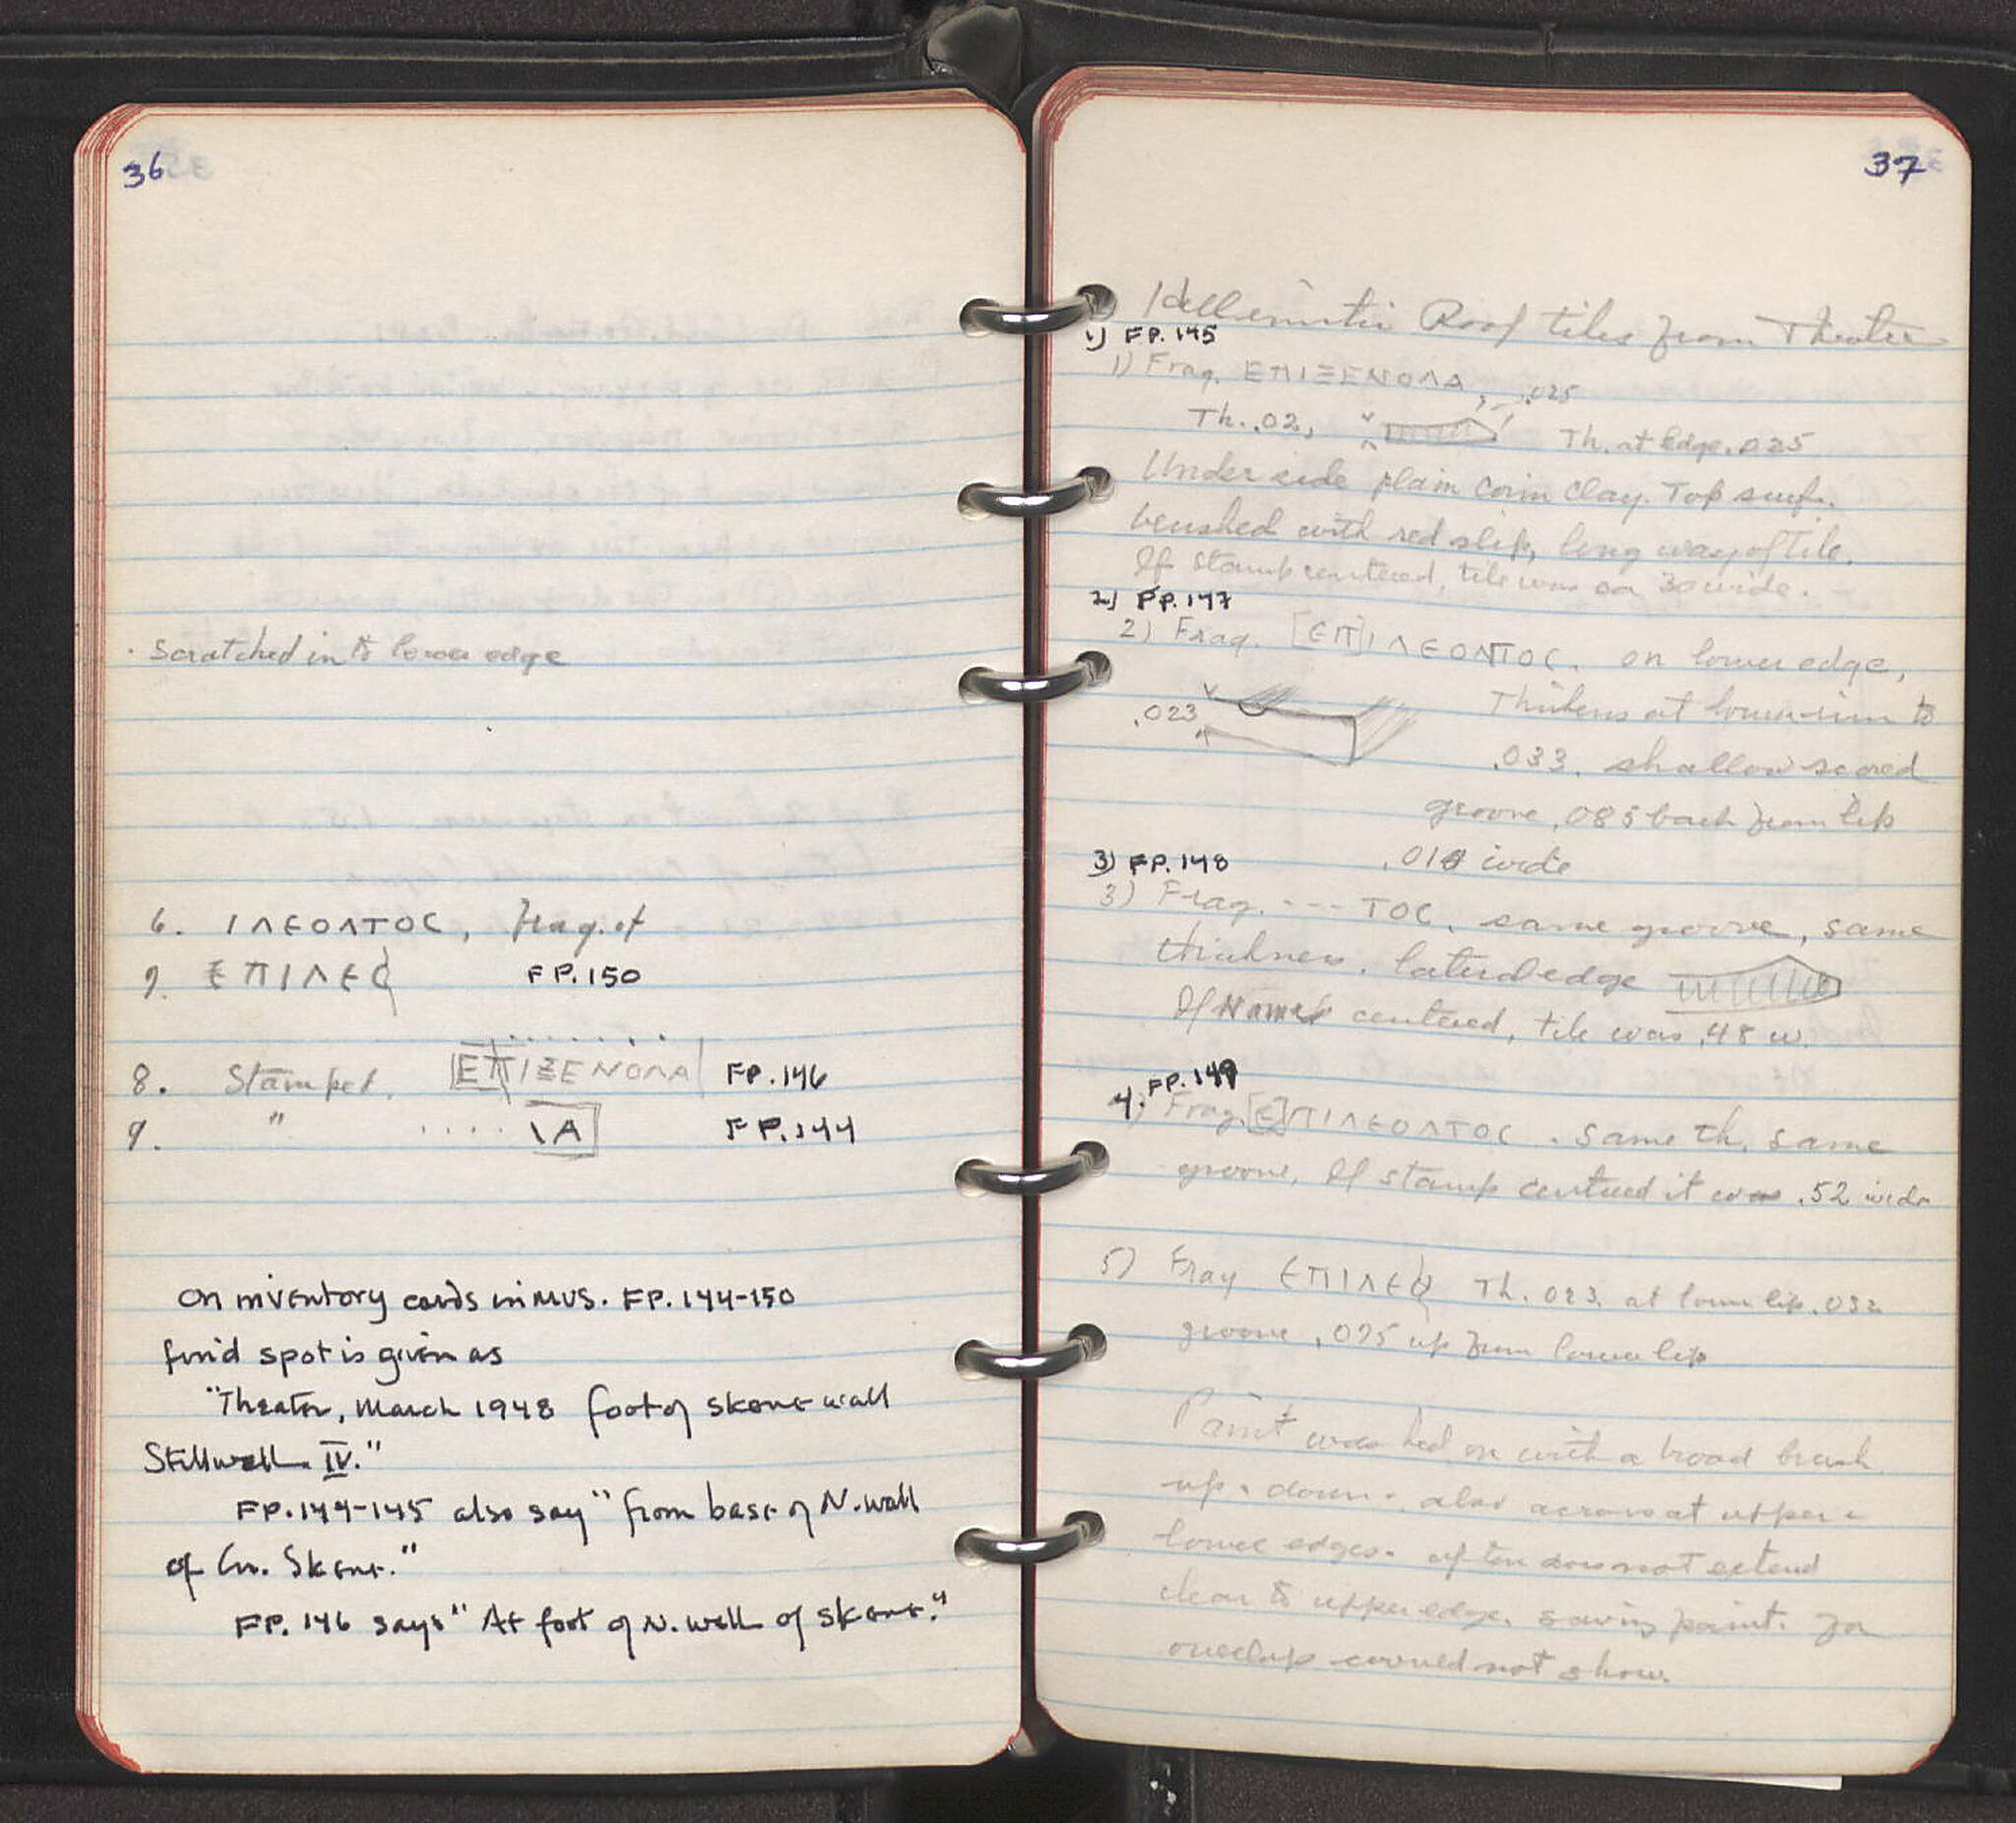 36
· Scratched into lower edge
6. ΙΛΕΟΛΤΟC, Frag. of
7. ΕΠΙΛΕΟ FP.150
8. Stamped. [ΕΠ]ΙΞΕΝΟΛΑ FP.146
9. " ..... \Α FP.144
On inventory cards in Mus. FP.144-150
find spot is given as
"Theater, March 1948 foot of skene wall
Stillwell IV."
FP.144-145 also say "from base of N. wall
of Gr. Skene."
FP. 146 says "At foot of N. wall of skene."
37
Hellenistic Roof tiles from Theatre
1) FP.145
1) Frag. ΕΠΙΞΕΝΟΛΑ, .025
Th. .02, Th. at Edge .025
Under side plain Corin clay. Top surf.
brushed with red slip, long way of tile.
If stamp centered, tile was ca 30 wide.
2) FP.147
2) Frag. [ΕΠ]ΙΛΕΟΝΤΟC. on lower edge,
.023 Thickens at lower rim to
.033. shallow scored
groove, .085 back from lip
3) FP.148
.01 wide
3) Frag. --- ΤΟC. same groove, same
thickness. lateral edge
If Name centered, tile was .48 w.
FP.149
4) Frag. [Ε]ΠΙΛΕΟΛΤΟC. same th. same
groove, If stamp centered it was .52 wide
5) Frag ΕΠΙΛΕΟ Th. 023. at lower lip .032
groove, .075 up from lower lip
Paint was laid on with a broad brush
up & down - also across at upper &
lower edges. often does not extend
clear to upper edge, saving paint. for
overlap would not show.